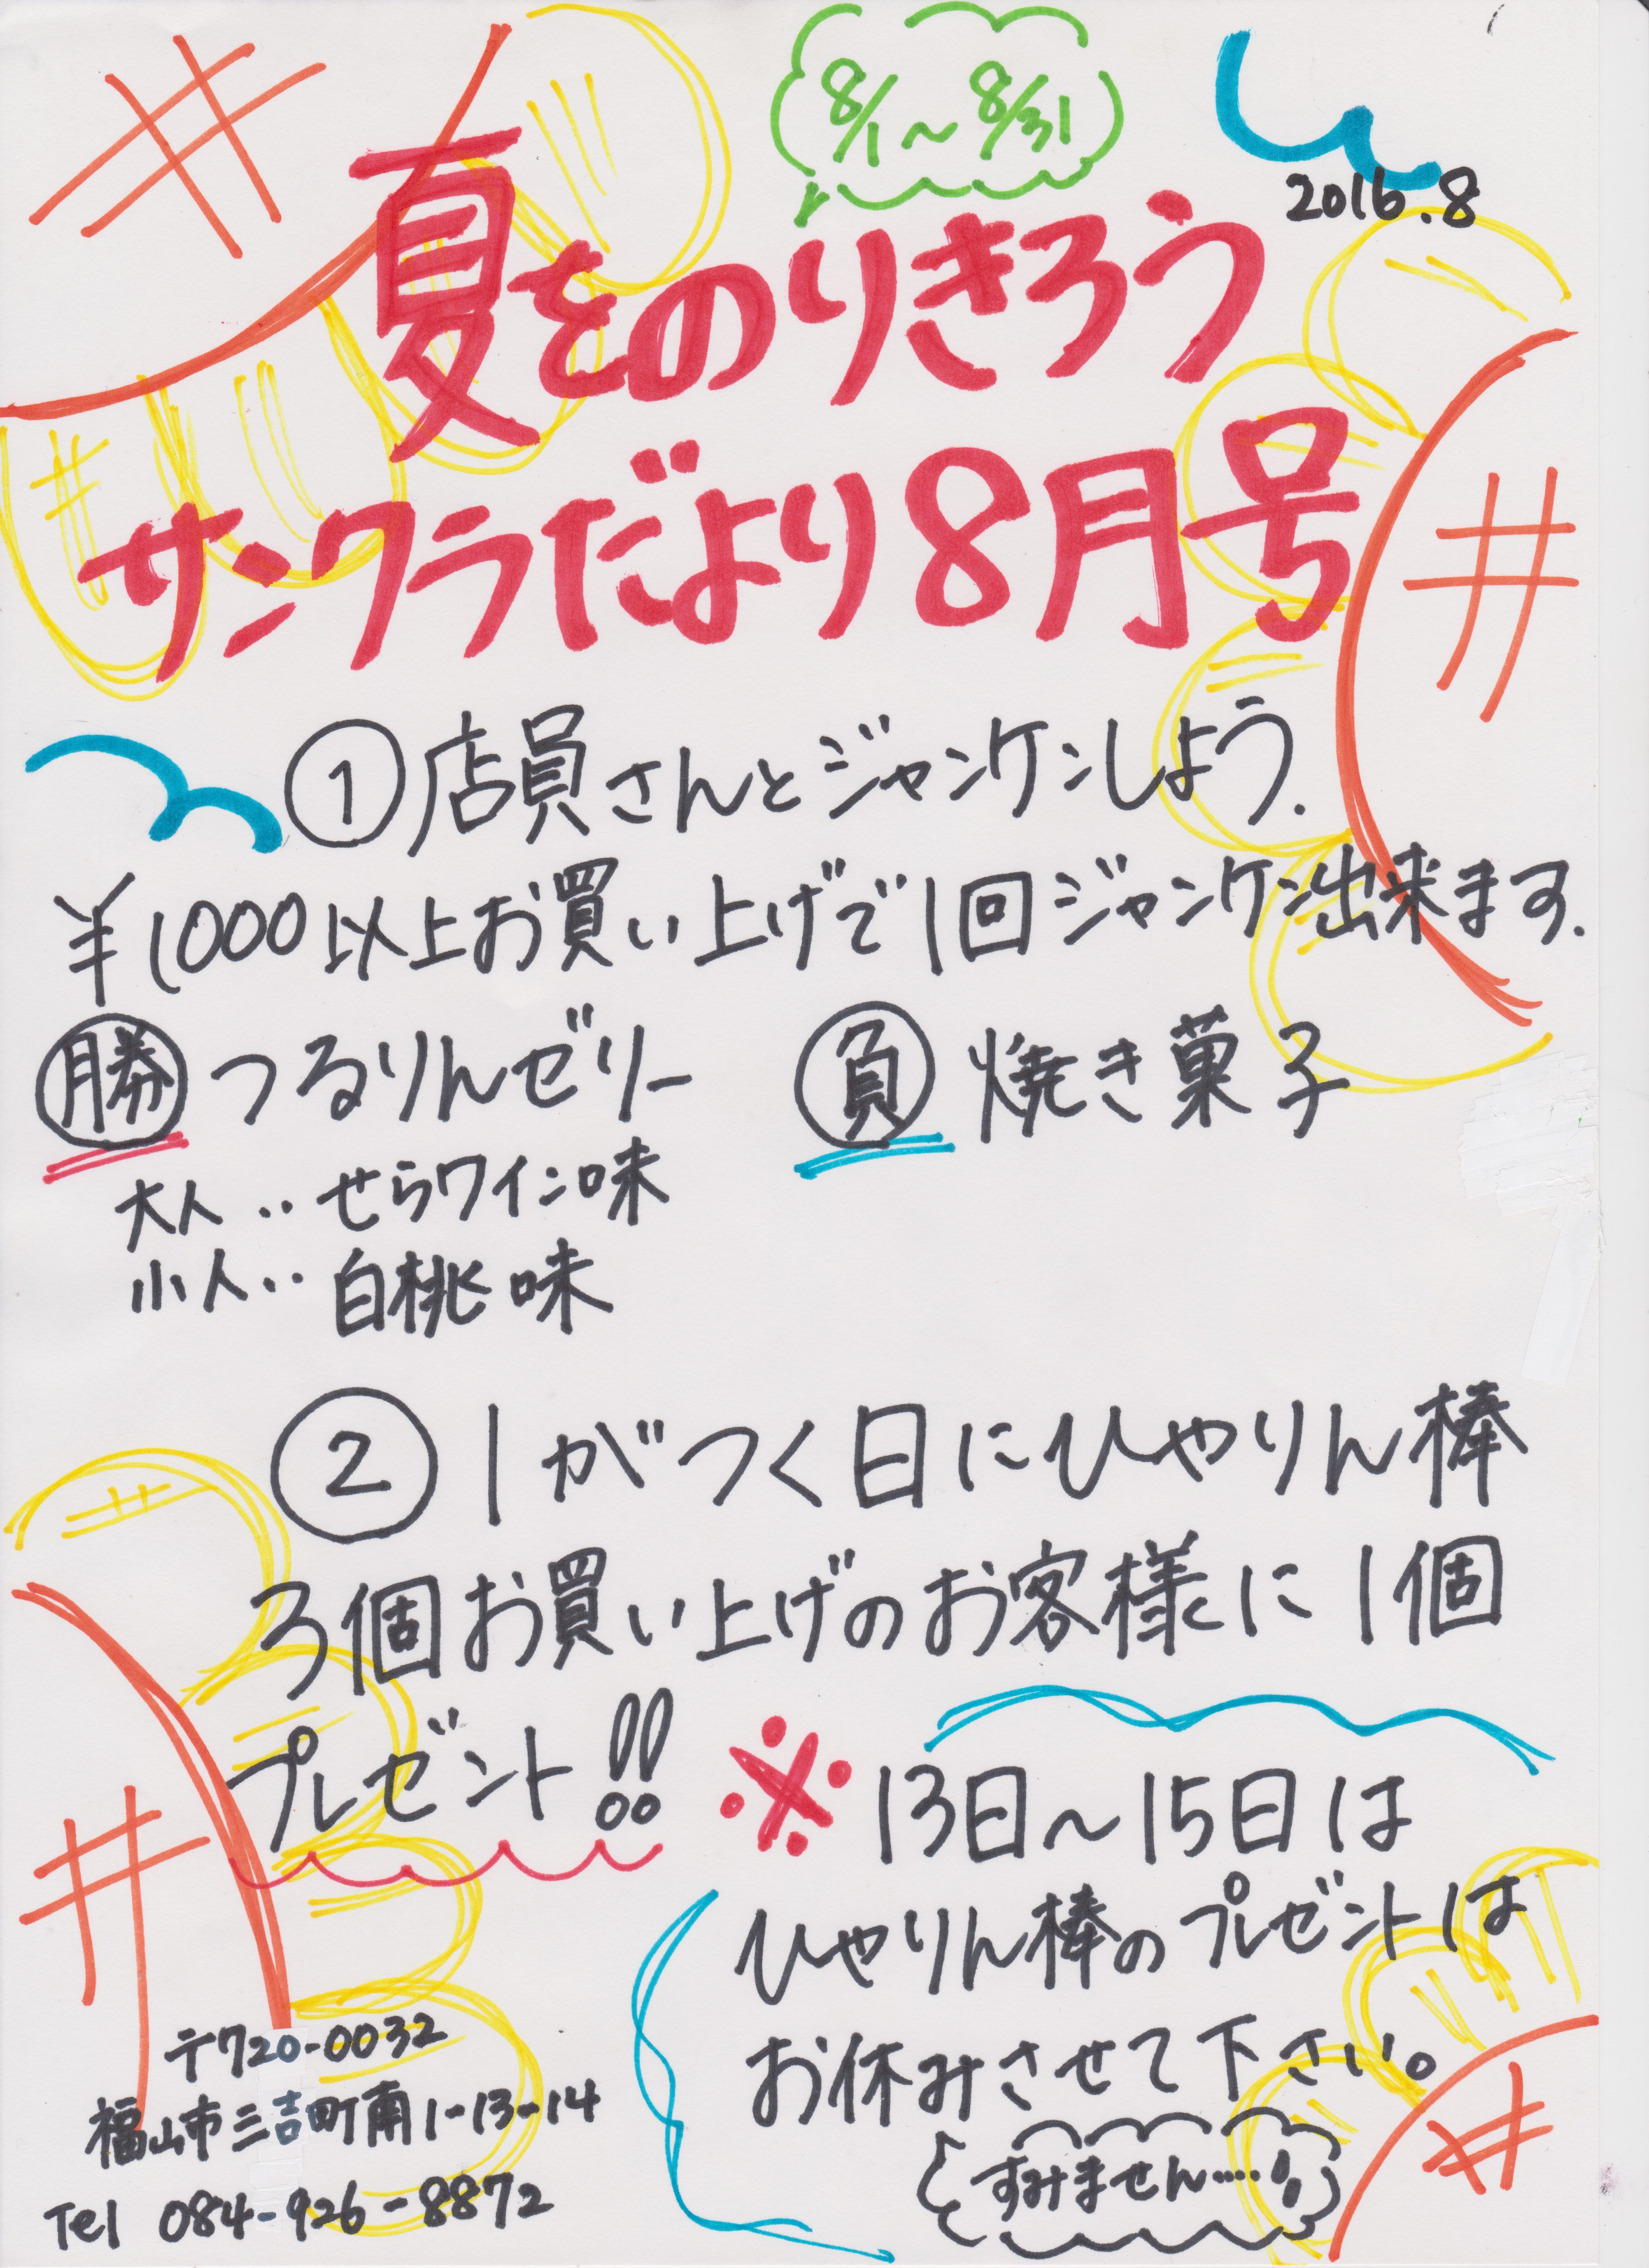 8/1〜8/31
2016.8
夏をのりきろう
サンクラだより8月号
①店員さんとジャンケンしよう.
¥1000以上お買い上げで1回ジャンケン出来ます.
勝 つるりんゼリー 負 焼き菓子
大人‥せらワイン味
小人‥白桃味
② 1がつく日にひやりん棒
3個お買い上げのお客様に1個
プレゼント!!
※13日〜15日は
ひやりん棒のプレゼントは
お休みさせて下さい。
すみません....
〒720-0032
福山市三吉町南1-13-14
Tel 084-926-8872